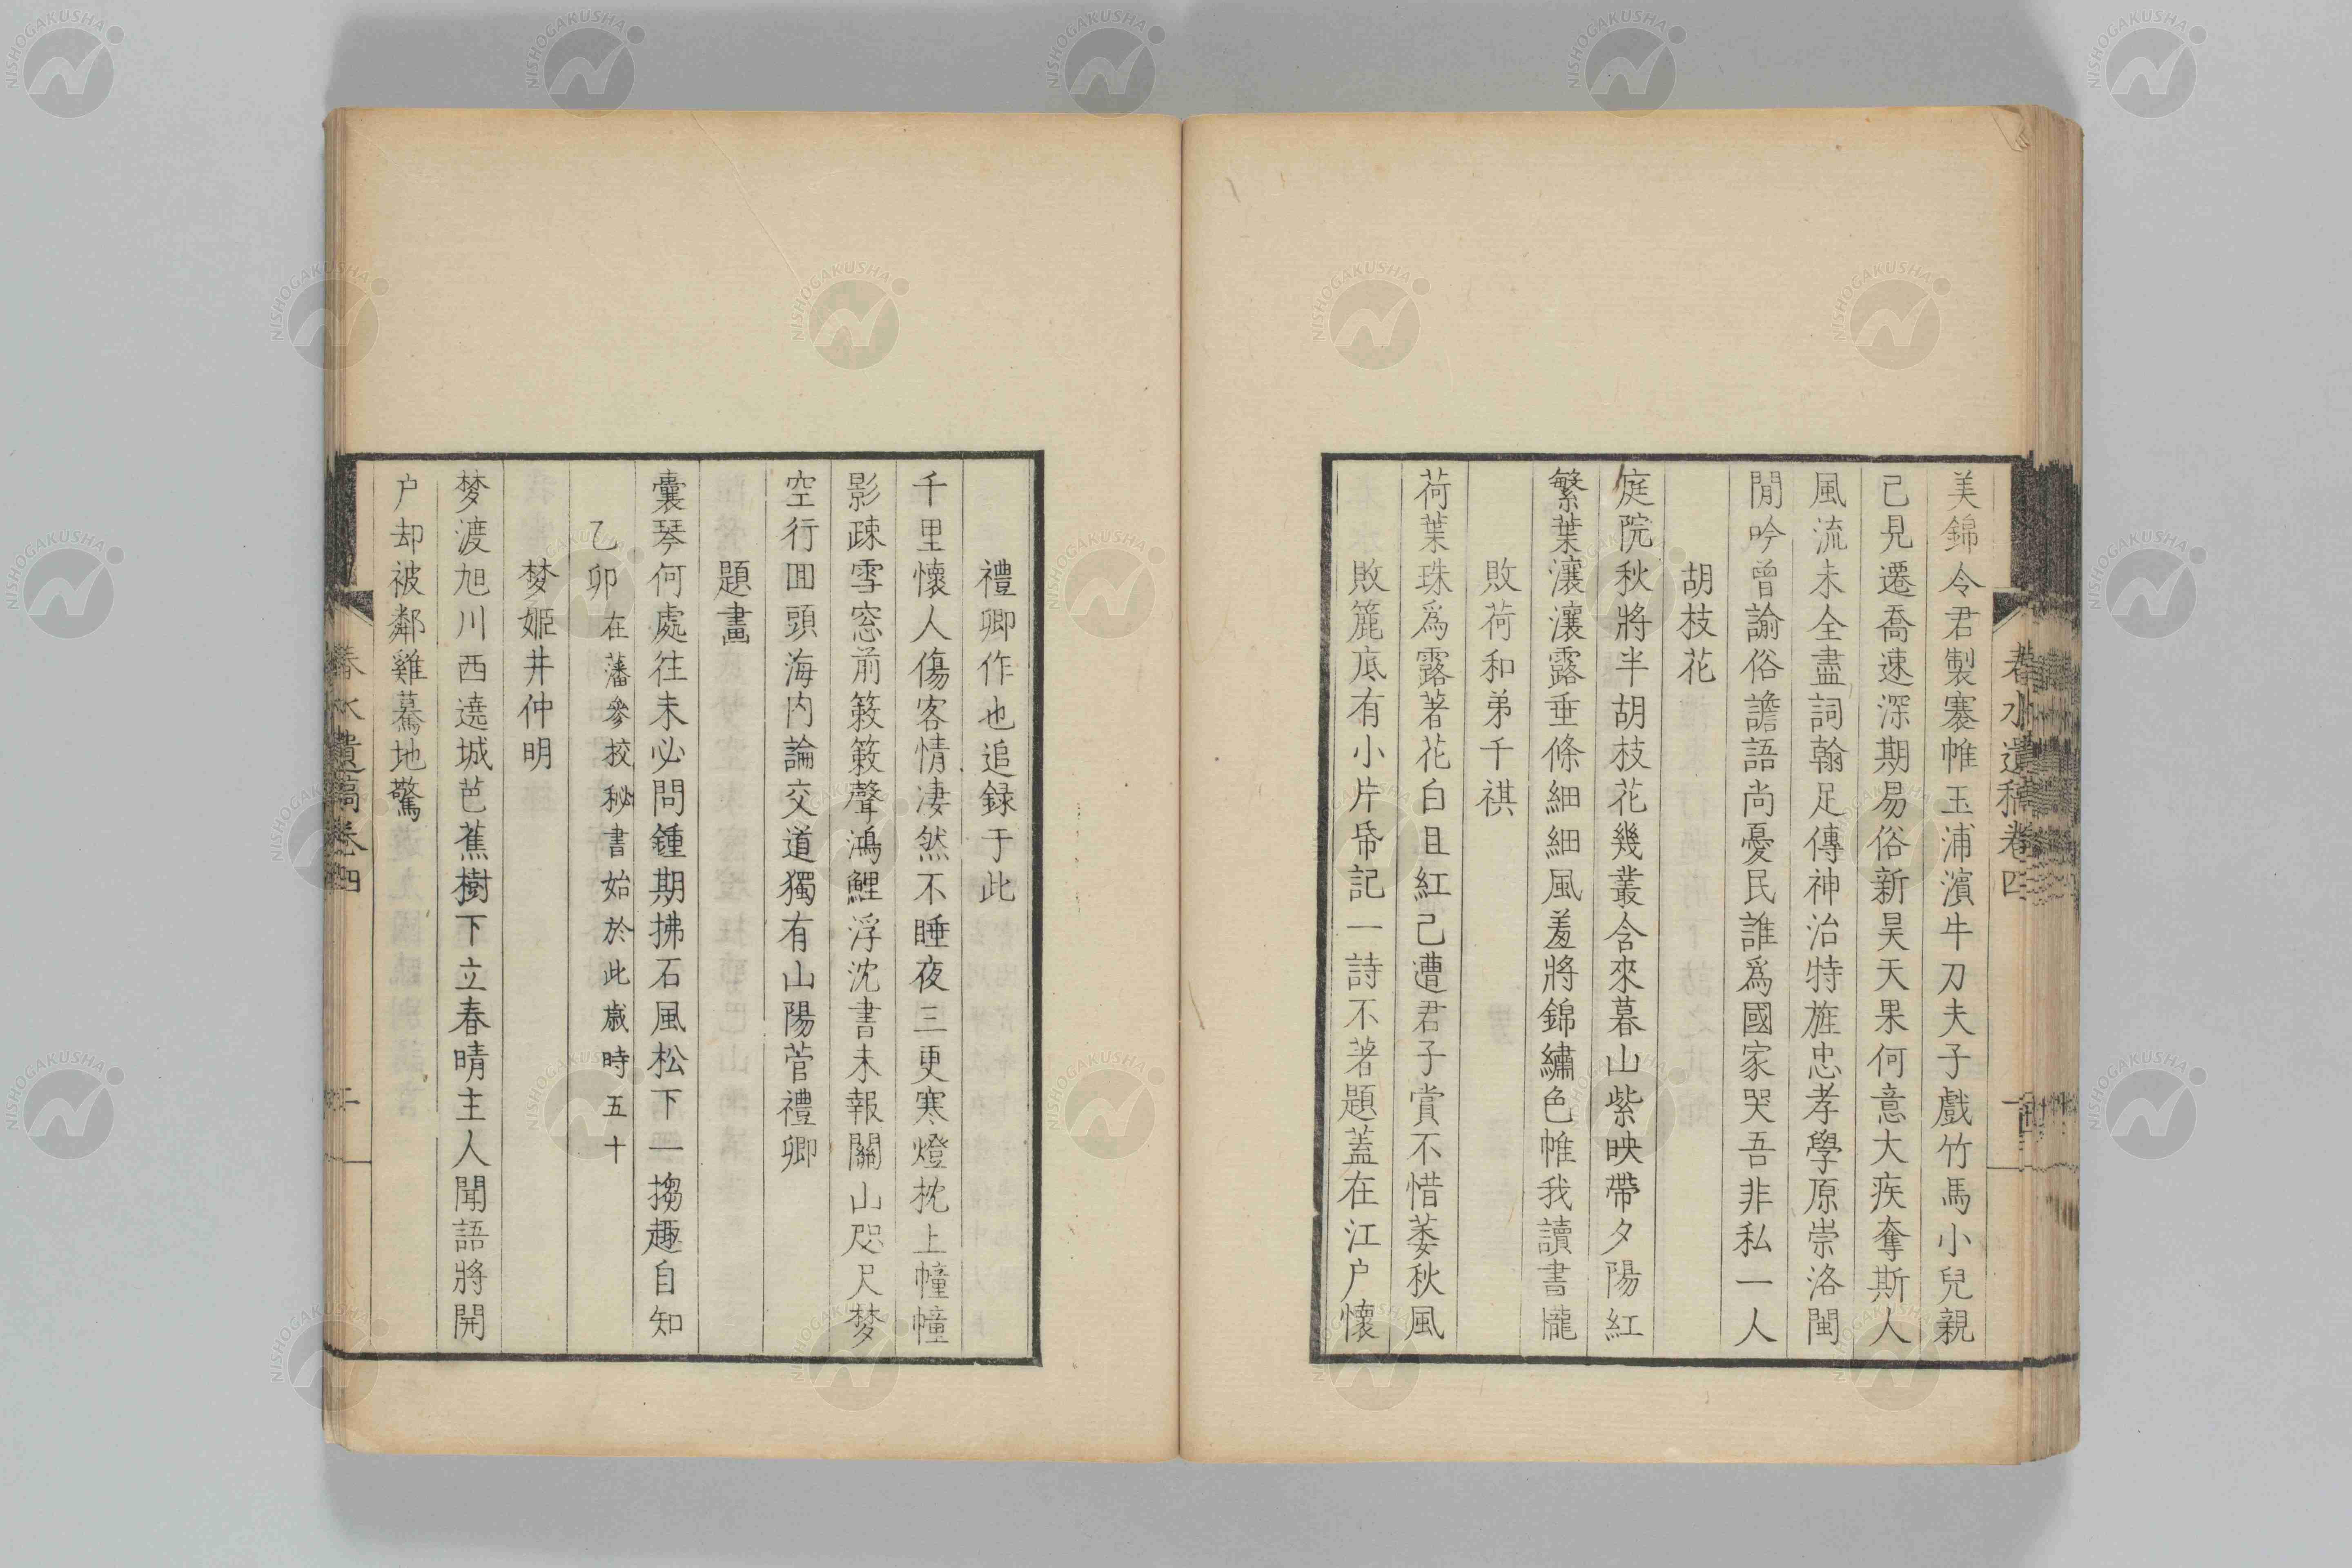 美錦令君製褰帷玉浦濱牛刀夫子戲竹馬小兒親
已見遷喬速深期易俗新昊天果何意大疾奪斯人
風流未全盡詞翰足傳神治特旌忠孝學原崇洛閩
閒吟曾諭俗譫語尚憂民誰爲國家哭吾非私一人
胡枝花
庭院秋將半胡枝花幾叢含來暮山紫映帶夕陽紅
繁葉瀼瀼露垂條細細風羞將錦繡色帷我讀書櫳
敗荷和弟千祺
荷葉珠爲露著花白且紅已遭君子賞不惜萎秋風
敗簏底有小片帋記一詩不著題蓋在江户懷
春水遺稿卷四
禮卿作也追録于此
千里懷人傷客情凄然不睡夜三更寒燈枕上幢幢
影疎雪窓前簌簌聲鴻鯉浮沈書未報關山咫尺梦
空行囬頭海内論交道獨有山陽菅禮卿
題畫
囊琴何處往未必問鍾期拂石風松下一搊趣自知
乙卯在藩參挍秘書始於此歲時五十
梦姬井仲明
梦渡旭川西遶城芭蕉樹下立春晴主人聞語將開
户却被鄰雞驀地驚
春水遺稿卷四
NISHOGAKUSHA